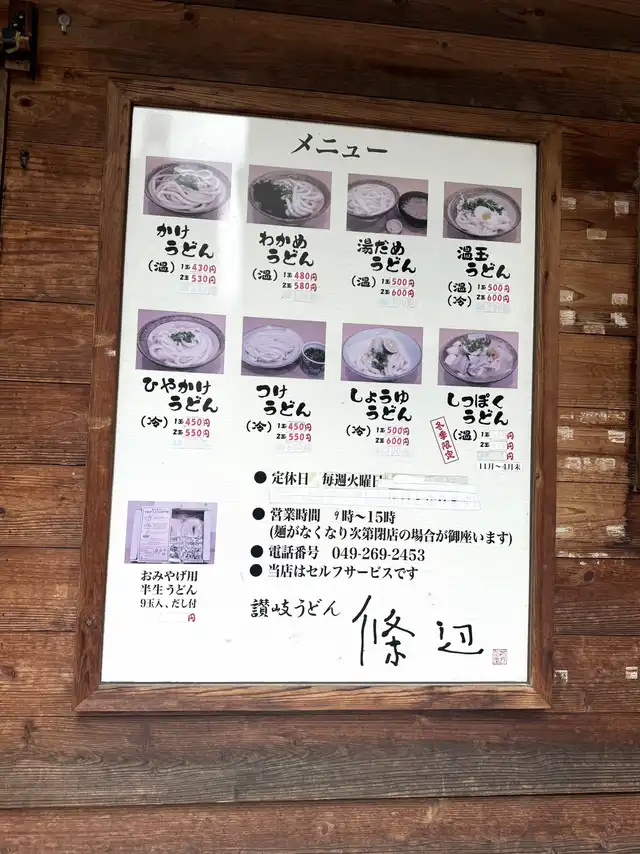 メニュー
かけ
うどん
(温) 1玉 430円
2玉 530円
わかめ
うどん
(温) 1玉 480円
2玉 580円
湯だめ
うどん
(温) 1玉 500円
2玉 600円
温玉
うどん
(温) 1玉 500円
(冷) 2玉 600円
ひやかけ
うどん
(冷) 1玉 450円
2玉 550円
つけ
うどん
(冷) 1玉 450円
2玉 550円
しょうゆ
うどん
(冷) 1玉 500円
2玉 600円
しっぽく
うどん
冬季限定
(温) 1玉 円
2玉 円
円
11月〜4月末
● 定休日 毎週火曜日
● 営業時間 9時〜15時
(麺がなくなり次第閉店の場合が御座います)
● 電話番号 049-269-2453
● 当店はセルフサービスです
おみやげ用
半生うどん
9玉入、だし付
円
讃岐うどん 條辺